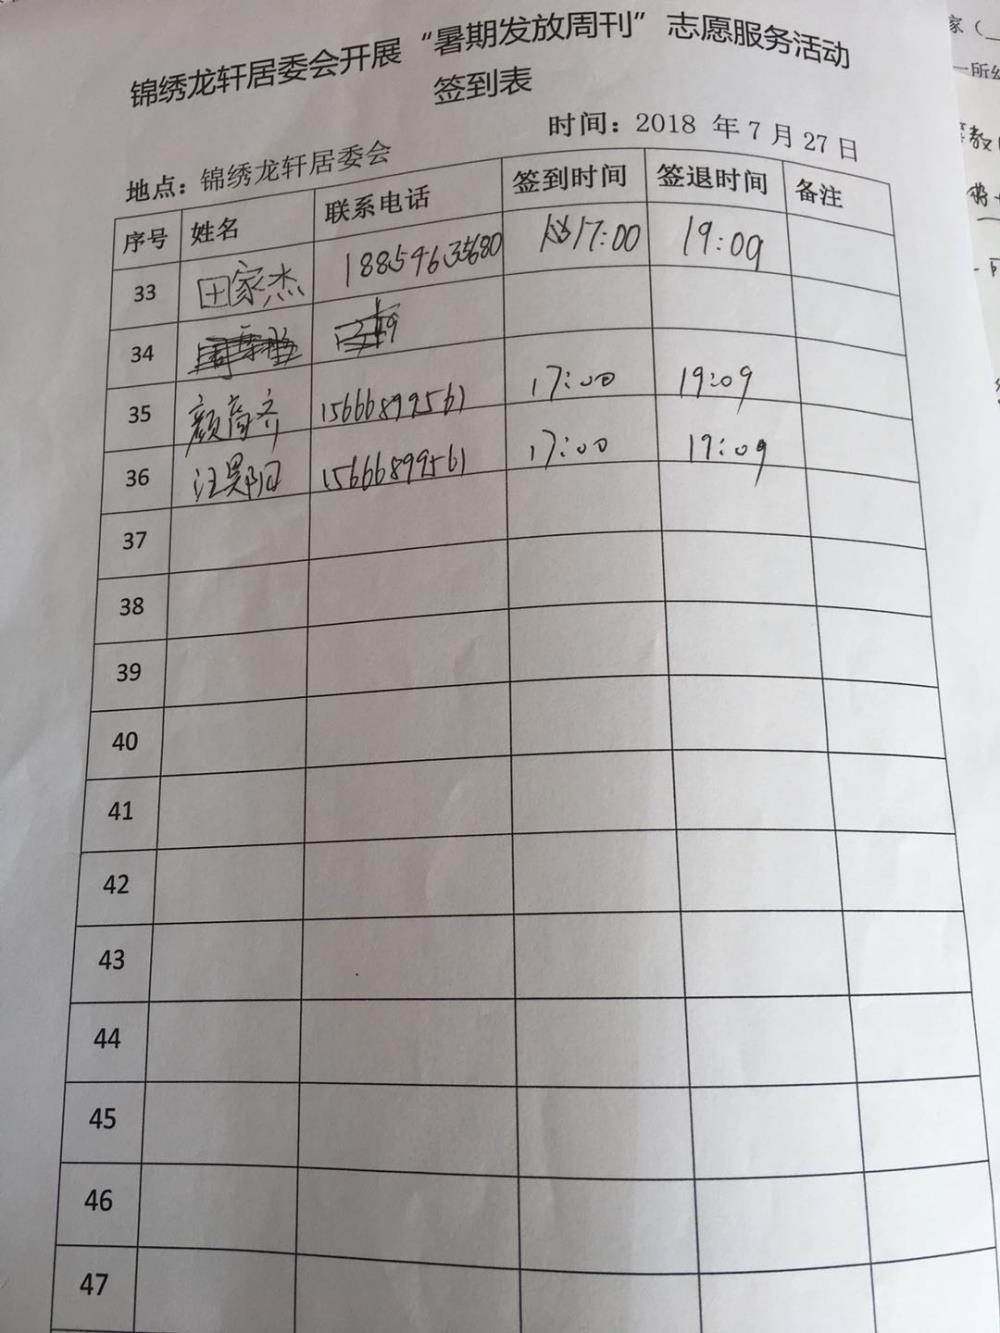 锦绣龙轩居委会开展“暑期发放周刊”志愿服务活动
签到表
时间：2018 年 7 月 27 日
地点：锦绣龙轩居委会
序号 姓名 联系电话 签到时间 签退时间 备注
33 田家杰 17:00 19:09
34
35 颜育齐 15666899561 17:00 19:09
36 15666899561 17:00 19:09
37
38
39
40
41
42
43
44
45
46
47